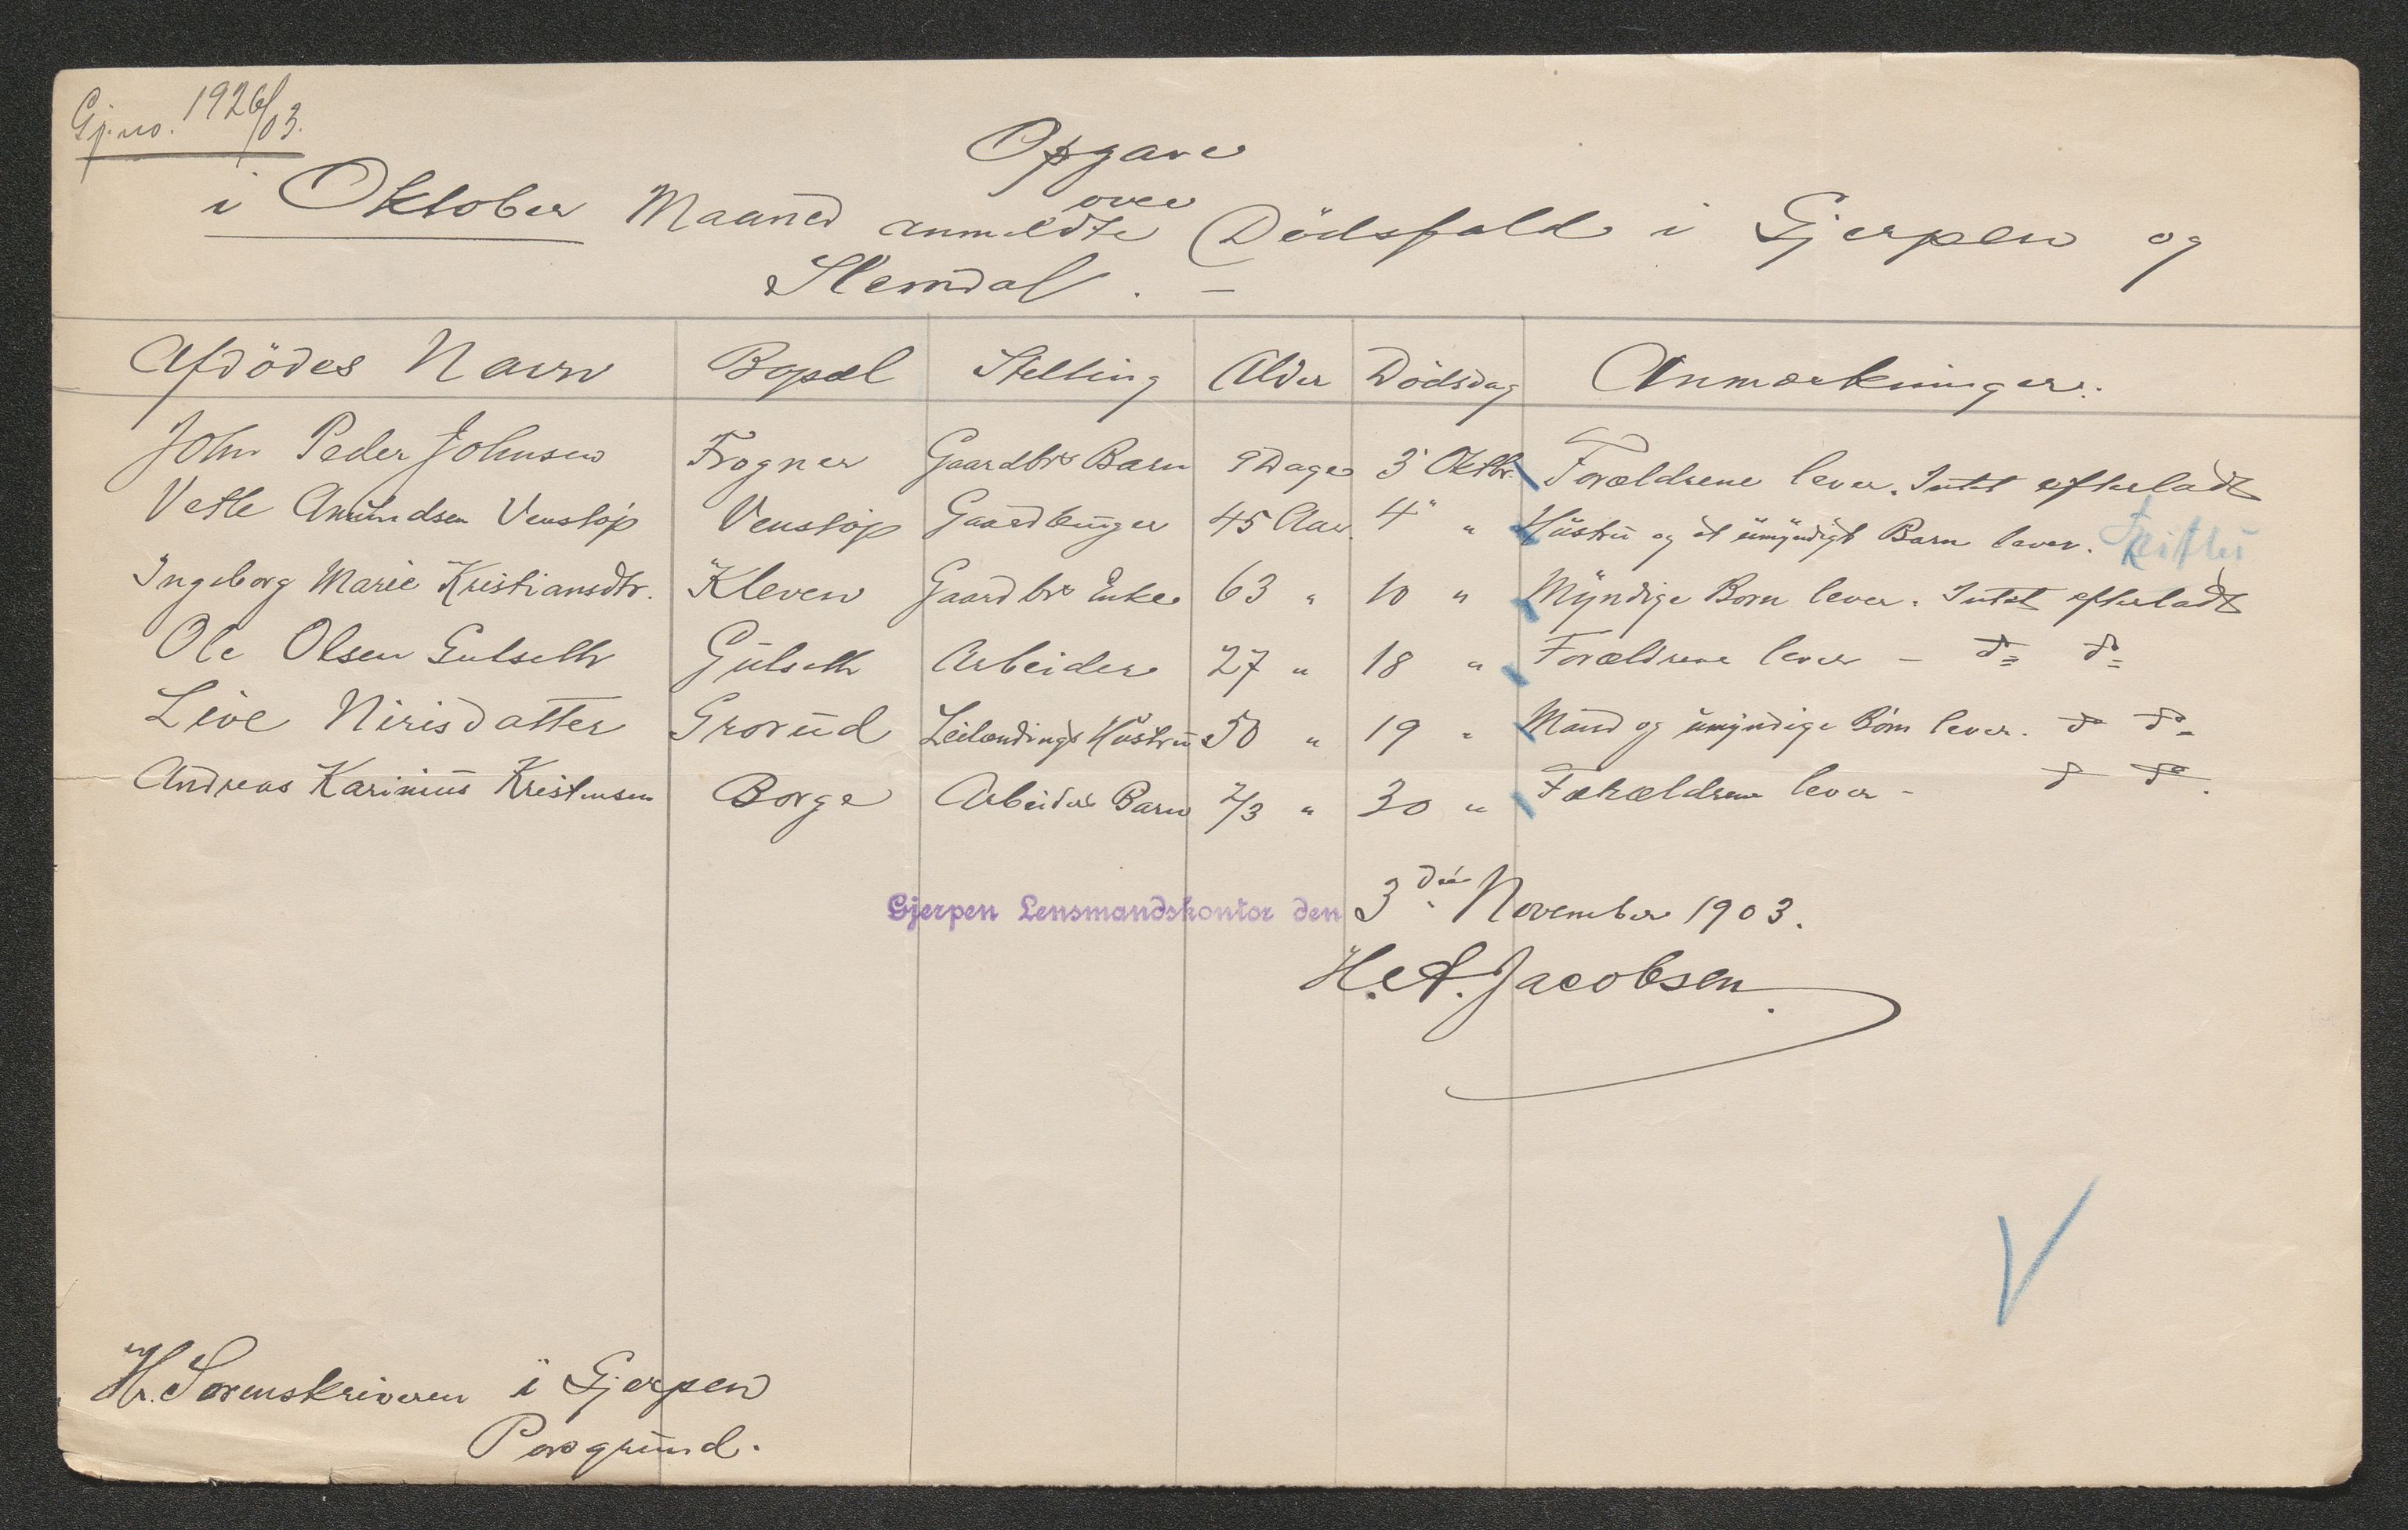 Gj. no. 1926/03.
Opgave
over
i Oktober Maaned anmeldte Dödsfald i Gjerpen og
Slemdal. –
Afdödes Navn Bopæl Stilling Alder Dödsdag Anmærkninger.
John Peder Johnsen Frogner Gaardbrs Barn 9 Dage 3 Oktbr. Forældrene lever. Intet efterladt
Vetle Amundsen Venstöp Venstöp Gaardbruger 45 Aar. 4 " Hustru og et umyndigt Barn lever. Skifter
Ingeborg Marie Kristiansdtr. Kleven Gaardbrs Enke 63 " 10 " Myndige Börn lever. Intet efterladt
Ole Olsen Gulseth Gulseth Arbeider 27 " 18 " Forældrene lever – do do
Live Nirisdatter Grorud Leilændings Hustru 50 " 19 " Mand og umyndige Börn lever. do do
Andreas Karinius Kristensen Borge Arbeiders Barn 2/3 " 30 " Forældrene lever – do do.
Gjerpen Lensmandskontor den 3die November 1903.
H. A. Jacobsen.
Hr. Sorenskriveren i Gjerpen
Porsgrund.